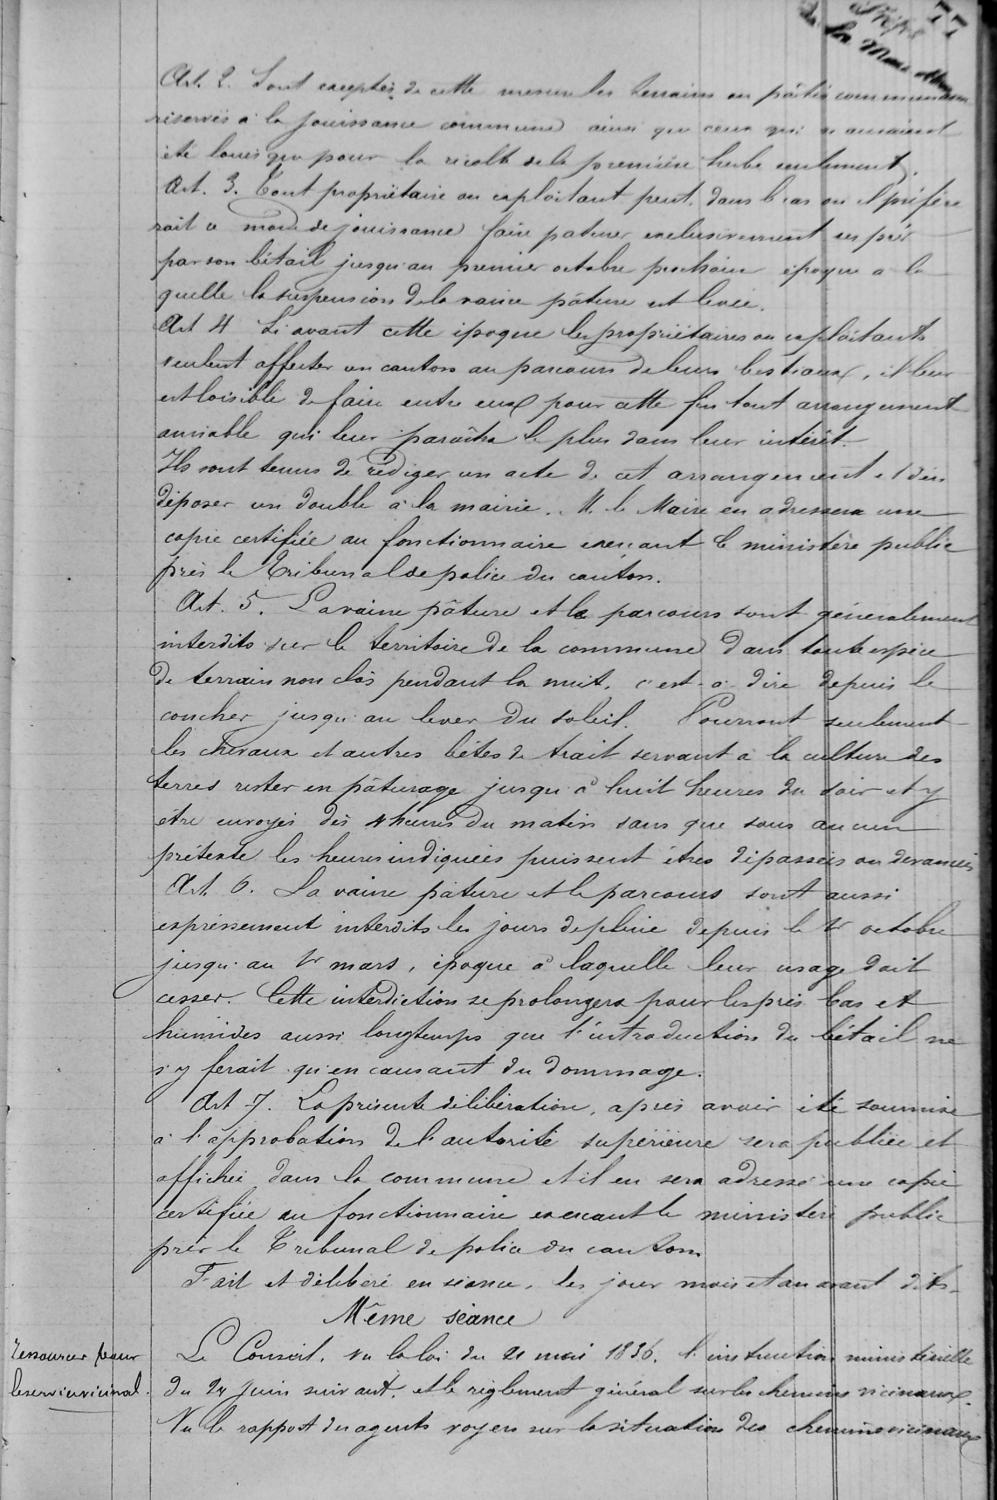 77
Art. 2. Sont exceptés de cette mesure les terrains ou pâtis communaux
réservés à la jouissance commune ainsi que ceux qui n'auraient
été loués que pour la récolte de la première herbe seulement.
Art. 3. Tout propriétaire ou exploitant peut, dans le cas où il préfére
rait ce mode de jouissance faire paturer exclusivement ses prés
par son bétail jusqu'au premier octobre prochain époque à la
quelle la suspension de la vaine pâture est levée.
Art 4 Si avant cette époque les propriétaires ou exploitants
veulent affecter un canton au parcours de leurs bestiaux, il leur
est loisible de faire entre eux pour cette fin tout arrangement
amiable qui leur paraîtra le plus dans leur intérêt.
Ils sont tenus de rédiger un acte de cet arrangement et d'en
déposer un double à la mairie. M. le Maire en adressera une
copie certifiée au fonctionnaire exerçant le ministère public
près le Tribunal de police du canton.
Art. 5. La vaine pâture et le parcours sont généralement
interdits sur le territoire de la commune dans toute espèce
de terrain non clos pendant la nuit, c'est-à-dire depuis le
coucher jusqu'au lever du soleil. Pourront seulement
les chevaux et autres bêtes de trait servant à la culture des
terres rester en pâturage jusqu'à huit heures du soir et y
être envoyés dès 4 heures du matin sans que sous aucun
prétexte les heures indiquées puissent êtres dépassées ou devancées
Art. 6. La vaine pâture et le parcours sont aussi
expréssement interdits les jours de pluie depuis le 1r octobre
jusqu'au 1r mars, époque à laquelle leur usage doit
cesser. Cette interdiction se prolongera pour les prés bas et
humides aussi longtemps que l'introduction du bétail ne
s'y ferait qu'en causant du dommage.
Art 7. La présente délibération, après avoir été soumise
à l'approbation de l'autorité supérieure sera publiée et
affichée dans la commune et il en sera adressé une copie
certifiée au fonctionnaire exerçant le ministère public
près le Tribunal de police du canton
Fait et délibéré en séance, les jour mois et an avant dits.
Même séance
Ressources pour
le service vicinal.
Le Conseil, vu la loi du 21 mai 1836, l'instruction ministérielle
du 24 juin suivant, et le règlement général sur les chemins vicinaux.
Vu le rapport des agents voyers sur la situation des chemins vicinaux